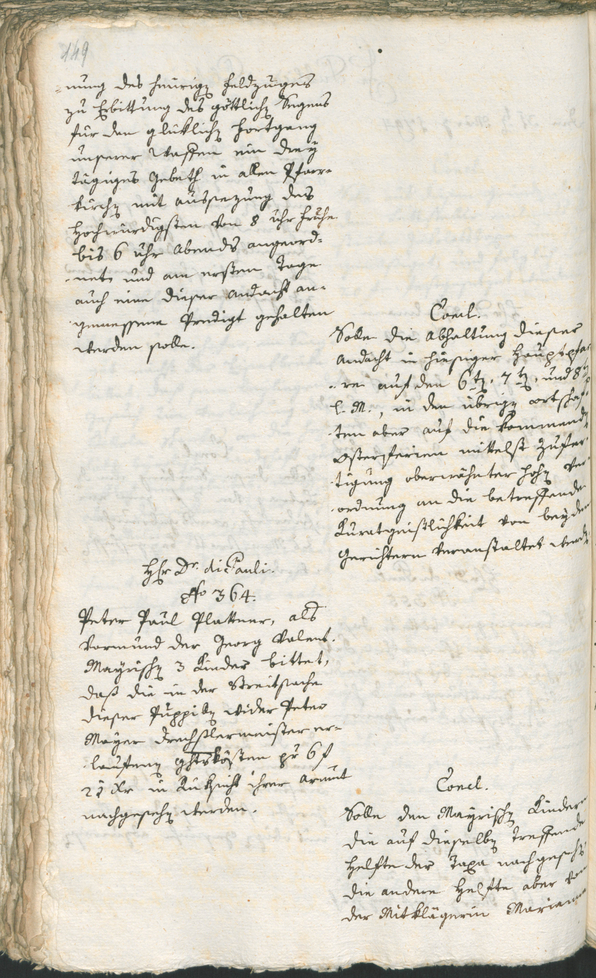 149
nung des heurigen Feldzuges
zu Erbittung des göttlichen Segens
für den glücklichen Fortgang
unserer Waffen ein drey
tägiges Gebeth in allen Pfarr-
kirchen mit Aussezung des
Hochwürdigsten von 8 Uhr Frühe
bis 6 Uhr Abends angeord-
net und am ersten Tage
auch eine dieser Andacht an-
gemessene Predigt gehalten
werden solle.
Concl.
Solle die Abhaltung dieser
Andacht in hiesiger Hauptpfar-
rei auf den 6ten, 7ten, und 8ten
l. M., in den übrigen Ortschaf-
ten aber auf die kommende
Osterferien mittelst Zufer-
tigung oberwähnter hohen Ver-
ordnung an die betreffende
Kuratgeistlichkeit von beyden
Gerichtern veranstaltet werden
Hr Dr. di Pauli.
No 364.
Peter Paul Plattner, als
Vormund der Georg Valent.
Mayrischen 3 Kinder bittet,
daß die in der Streitsache
dieser Puppillen wider Peter
Mayer Drechslermeister er-
laufenen ghtskösten pr 6 f
21 Xr in Rücksicht ihrer Armut
nachgesehen werden.
Concl.
Solle den Mayrischen Kindern
die auf dieselben treffende
Helfte der Taxa nachgesehen
die andere Helfte aber von
der Mitklägerin Marianna